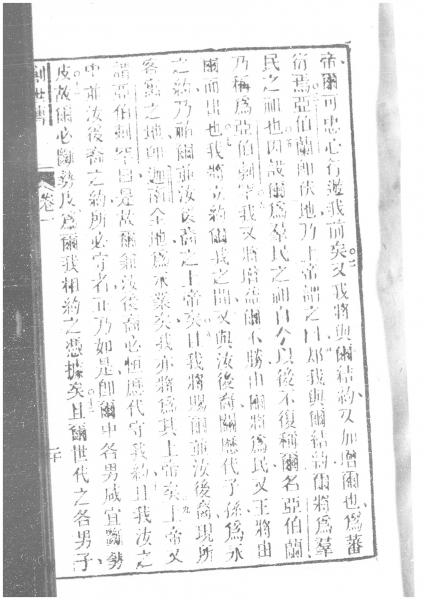 帝爾可忠心行遊我前矣又我將與爾結約又加增爾也爲蕃
衍焉亞伯蘭卽伏地乃上帝謂之曰却我與爾結約爾將爲羣
民之祖也因設爾爲羣民之祖自今以後不復稱爾名亞伯蘭
乃稱爲亞伯剌罕我又將增益爾不勝由爾將爲民又王將由
爾而出也我將立約爾我之間又與汝後裔關歷代子孫爲永
之約乃爾並汝後裔之上帝矣且我將賜爾並汝後裔現所
客寓之地卽迦南全地爲永業矣我亦將爲其上帝矣上帝又
謂亞伯剌罕曰是故爾並汝後裔必恒歷代守我約且我汝之
中並汝後裔之約所必守者正乃如是卽爾中各男咸宜斷勢
皮故爾必斷勢皮爲爾我相約之憑據矣且爾世代之各男子
創世傳 卷一 二十